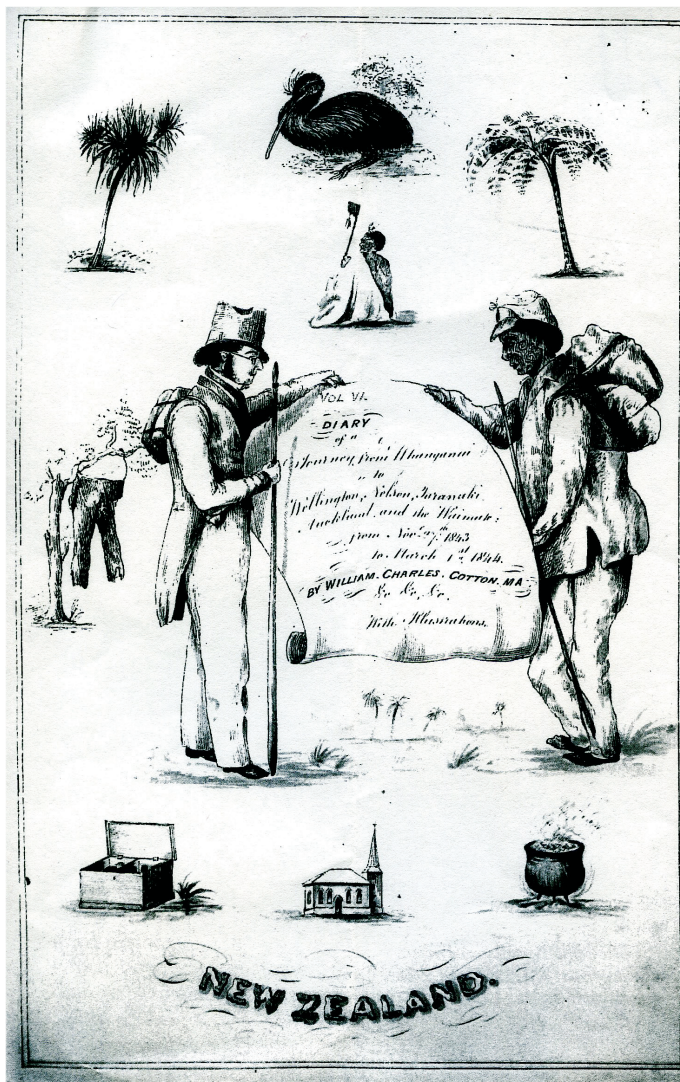 VOL VI.
DIARY
of a
Journey from Whanganui
to
Wellington, Nelson, Taranaki
Auckland and the Waimate:
from Nov. 27th 1843
to March 1st 1844.
BY WILLIAM. CHARLES. COTTON. MA
&c. &c. &c.
With Illustrations.
NEW ZEALAND.